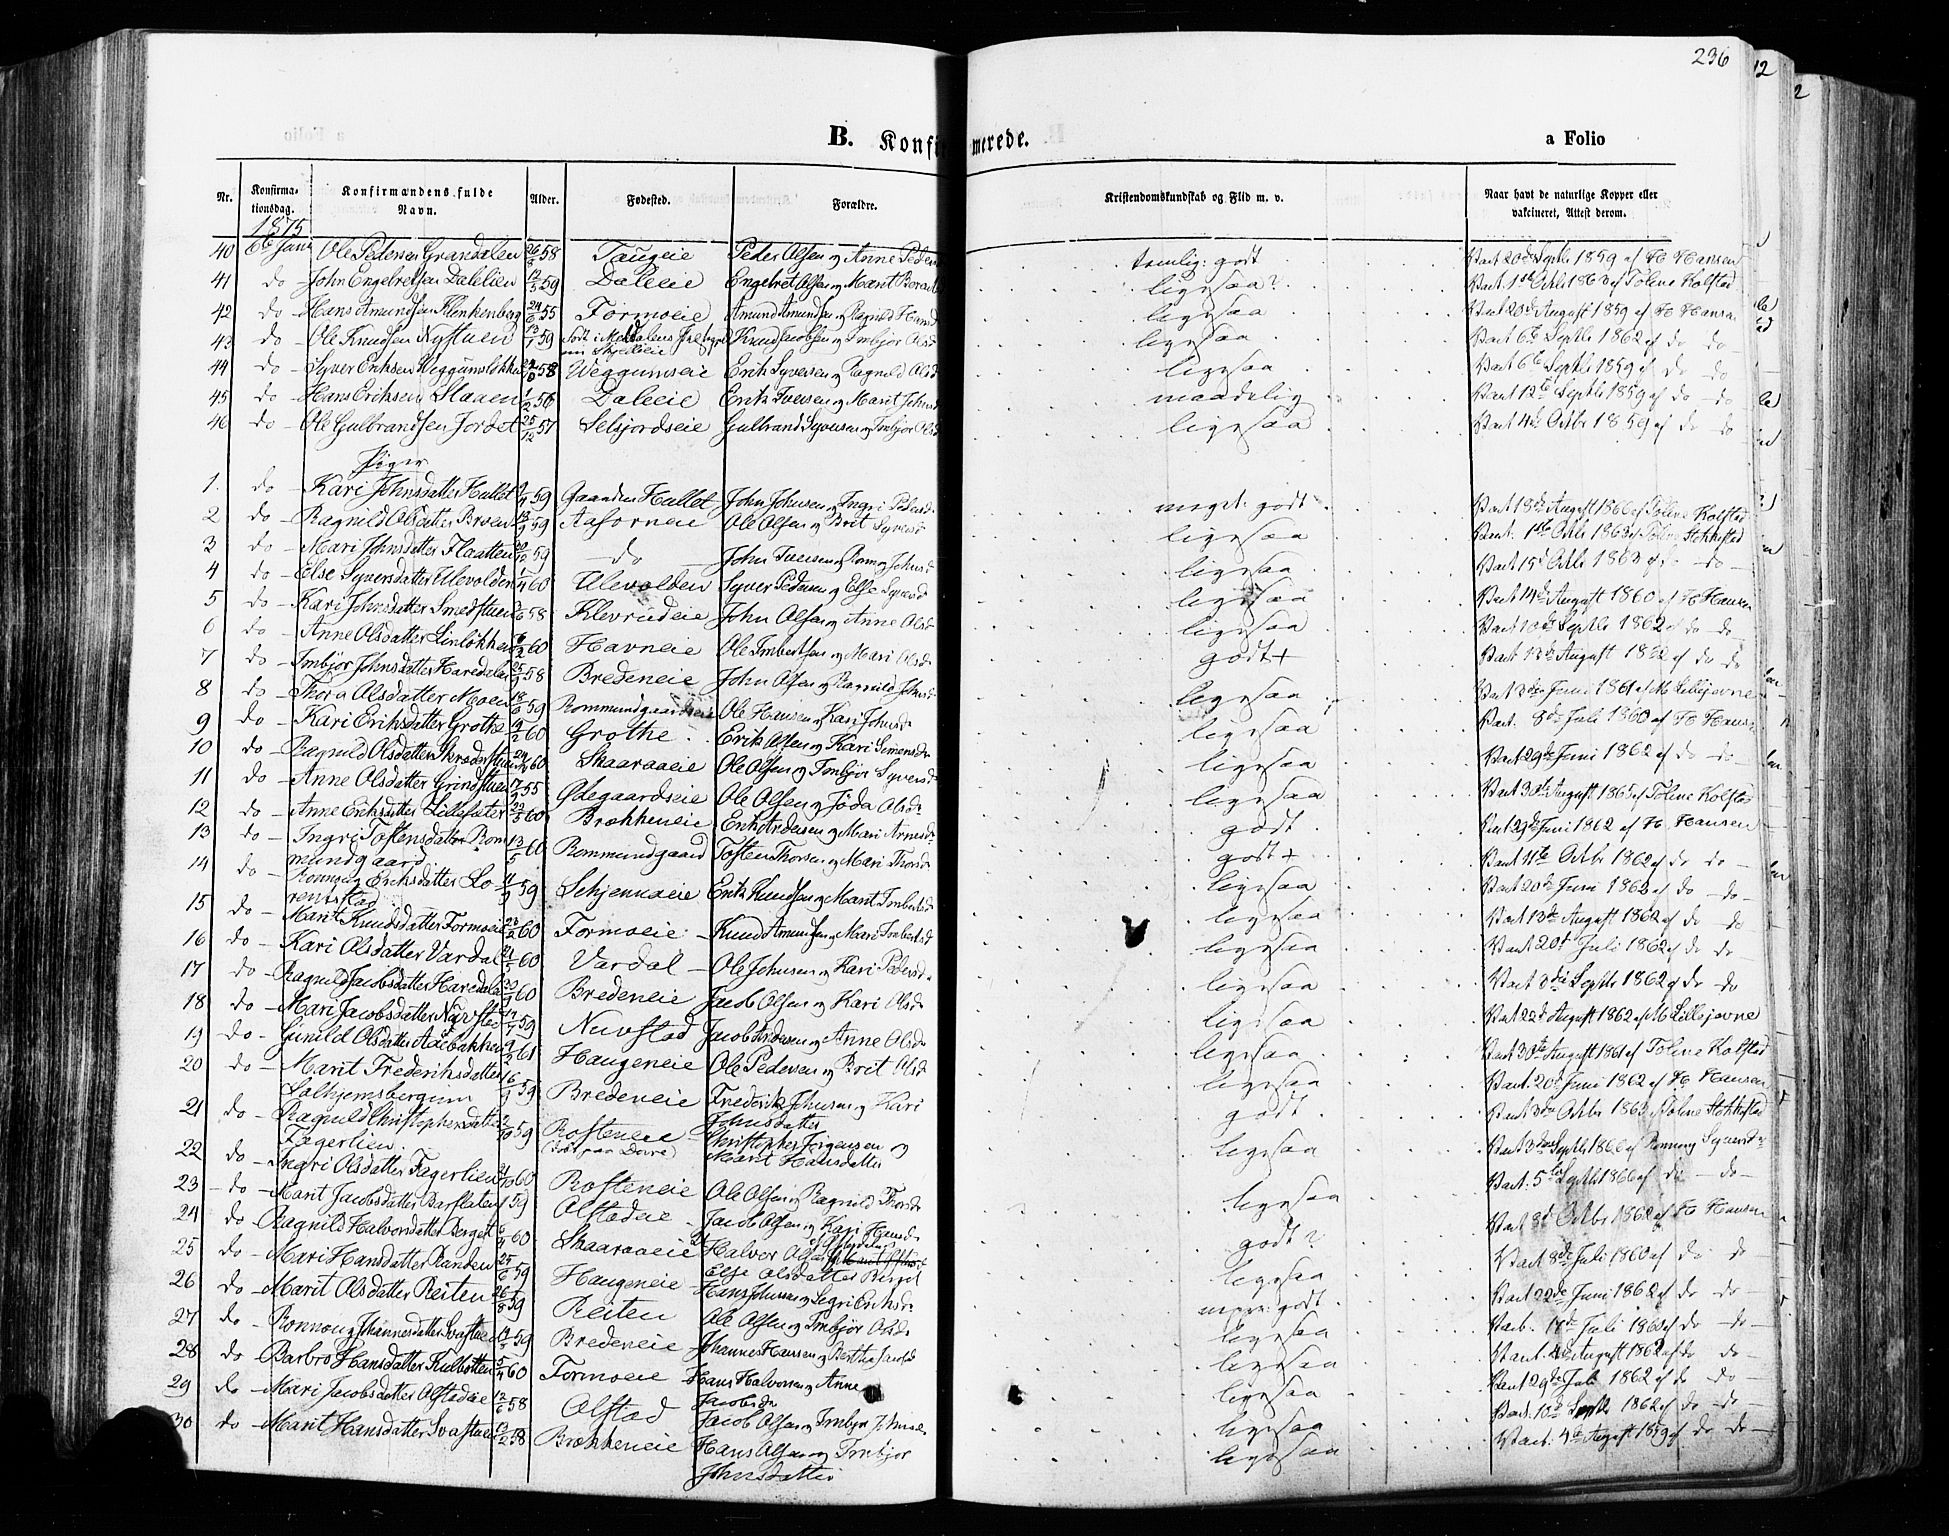 236
12
2
B. Konfirmerede.
a Folio
Nr. Konfirmationsdag. Konfirmandens fulde Navn. Alder. Fødested. Forældre. Kristendomskundskab og Flid m. v. Naar havt de naturlige Kopper eller vakcineret, Attest derom.
1875
40 6te Juni Ole Pedersen Grandalen 58 Taugeie Peder Olsen og Anne Peders temlig: godt Vact 20de Septb 1859 af H Hansen
41 do John Engelretsen Dalelien 12/5 59 Daleeie Engebret Olsen og Marit ligesaa? Vact. 1ste Octb 1863 af Toline Kolstad
42 do Hans Amundsen Klenkenberg 55 Formoeie Amund Amundsen og Ragnild Hansd ligesaa Vact 20de August 1859 af H Hansen
43 do Ole Knudsen Nystuen 13/1 59 Født i Knud Jacobsen og Imbjør Olsd ligesaa Vact 6te Septb 1862 af do do
44 do Syver Eriksen Veggumsløkken 58 Veggumseie Erik Syversen og Ragnild Olsd ligesaa Vact 6te Septb 1859 af do do
45 do Hans Eriksen Slaaen 1/2 56 Daleeie Erik Iversen og Marit Johnsd maadelig Vact 12te Septb 1859 af do do
46 do Ole Gulbrandsen Jordet 25/12 57 Selsjordseie Gulbrand Syversen og Imbjør Olsd ligesaa Vact 4de Octbr 1859 af do do
Piger
1. do Kari Johnsdatter Hullet 59 Gaarden Hullet John Johnsen og Ingri Pedersd meget godt Vact 18de August 1860 af Toline Kolstad
2 do Ragnild Olsdatter Broen 59 Aasorneie Ole Olsen og Brit Syversd ligesaa Vact. 1ste Octb 1863 af Toline Stokkstad
3 do Mari Johnsdatter Flaatten 59 do John Iversen og Ronnog Johnsd ligesaa Vact 15d Octb 1863 af do
4 do Else Syversdatter Ulevolden 1/4 60 Ulevolden Syver Pedersen og Else Syversd ligesaa Vact 14de August 1860 af H Hansen
5 do Kari Johnsdatter Smedstuen 58 Klevrudeie John Olsen og Anne Olsd ligesaa Vact 10de Septb 1862 af do do
6 do Anne Olsdatter Linløkken 60 Havneie Ole Imbertsen og Mari Olsd godt+ Vact 13de August 1862 af do do
7 do Imbjør Johnsdatter Haredalen 58 Bredeneie John Olsen og Ragnild Johnsd ligesaa Vact 3die Juni 1861 af M Lillejovne
8 do Thora Olsdatter Moen 59 Rommundgaardseie Ole Hansen og Kari Johnsd ligesaa Vact. 8de Juli 1860 af H Hansen
9 do Kari Eriksdatter Grothe 60 Grothe Erik Olsen og Kari Simensd ligesaa Vact 29de Juni 1862 af do do
10 do Ragnild Olsdatter 60 Skaaraaeie Ole Olsen og Imbjør Syversd ligesaa Vact 30te August 1865 af Toline Kolstad
11 do Anne Olsdatter Grindstuen 55 Ødegaardseie Ole Olsen og Jøda Olsd godt Vact 29de Juni 1862 af H. Hansen
12 do Anne Eriksdatter Lillesæter 60 Brækkeneie Erik Andersen og Mari Arnesd godt+ Vact 11te Octbr 1862 af do do
13 do Ingri Tostensdatter Rommundgaard 13/5 60 Rommundgaard Tosten Thorsen og Mari Thorsd ligesaa Vact 20de Juni 1863 af do do
14 do Ronnog Eriksdatter Lorentstad 59 Schjennaeie Erik Knudsen og Marit Imbertsd ligesaa Vact 13de August 1862 af do do
15 do Marit Knudsdatter Formoeie 60 Formoeie Knud Amundsen og Mari Imbertsd ligesaa Vact 20d Juli 1862 af do do
16 do Kari Olsdatter Vardal 60 Vardal Ole Johnsen og Kari Pedersd ligesaa Vact 3die Septb 1862 af do do
17 do Ragnild Jacobsdatter Haredalen 60 Bredeneie Jacob Olsen og Kari Olsd ligesaa Vact 22d August 1862 af M Lillejovne
18 do Mari Jacobsdatter Nuvstad 59 Nuvstad Jacob Andersen og Anne Olsd ligesaa Vact 30te August 1861 af Toline Kolstad
19 do Gunild Olsdatter Aasebakken 61 Haugeneie Ole Pedersen og Brit Olsd ligesaa Vact. 20d Juni 1862 af H. Hansen
20 do Marit Frederiksdatter 16/9 59 Bredeneie Frederik Johnsen og Kari Johnsdatter godt Vact 3die Octbr 1863 Toline Stokkstad
21 do Ragnild Christophersdatter Fagerlien 59 Rosteneie (født paa Dovre) Christopher Jørgensen og Marit Hansdatter ligesaa Vact 3die Septb 1866 af Ronnog Syversdr
22 do Ingri Olsdatter Fagerlien 60 Rosteneie Ole Olsen og Ragnild Thorsd ligesaa Vact. 5te Septb 1866 af do do
23 do Marit Jacobsdatter Barflaten 59 Olstadeie Jacob Olsen og Kari Hansd godt? Vact 8d Octbr 1862 af H Hansen
24 do Ragnild Halvorsdatter Berget 6/4 60 Skaaraaeie Halvor Olsen Else Olsdatter Berget ligesaa Vact 8de Juli 1860 af do do
25 do Mari Hansdatter Randen 25/6 59 Haugeneie Hans Johnsen og Segri Eriksd meget godt Vact 22de Juni 1862 af do do
26 do Marit Olsdatter Reiten 26/8 59 Reiten Ole Olsen og Imbjør Olsd ligesaa Vact. 17de Juli 1860 af do do
27 do Ronnoug Johannesdatter Svastuen 59 Bredeneie Johannes Hansen og Berthe Jacobsd ligesaa Vact 4de August 1862 af do do
28 do Barbro Hansdatter Kulbotten 5/4 60 Formoeie Hans Halvorsen og Anne Jacobsdr ligesaa Vact 29de Juli 1862 af do do
29 do Mari Jacobsdatter Olstadeie 12/6 58 Olstad Jacob Olsen og Imbjør Johnsd ligesaa Vact. 10de Septb 1862 af do do
30 do Marit Hansdatter Svastuen 58 Brækkeneie Hans Olsen og Imbjør Johnsdatter ligesaa Vact. 4de August 1859 af do do